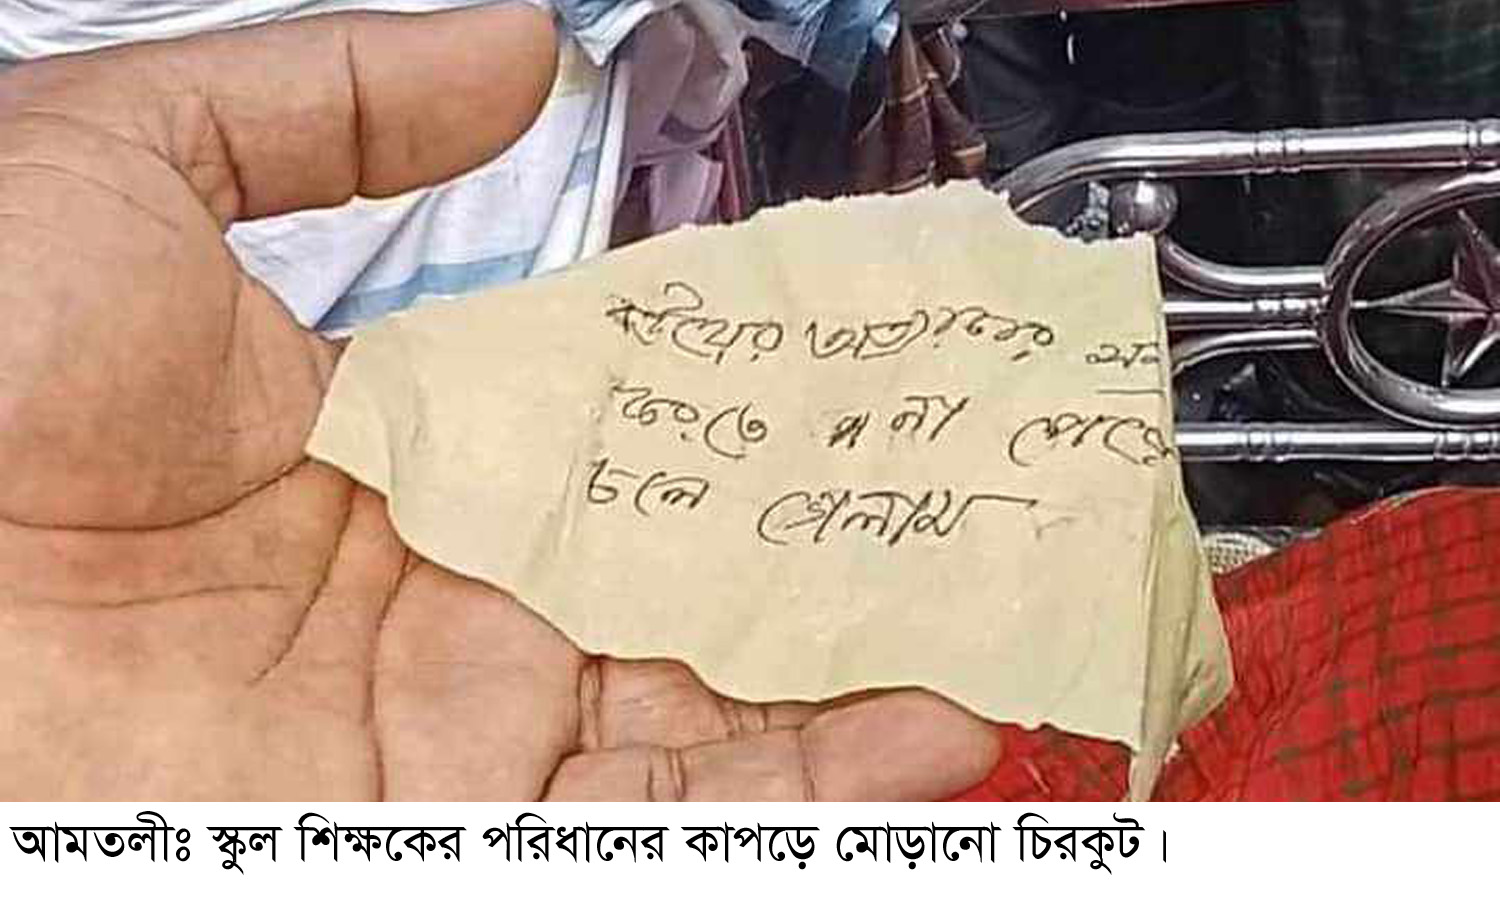 বউয়ের অত্যাচার
করতে না পেরে
চলে গেলাম
আমতলীঃ স্কুল শিক্ষকের পরিধানের কাপড়ে মোড়ানো চিরকুট।